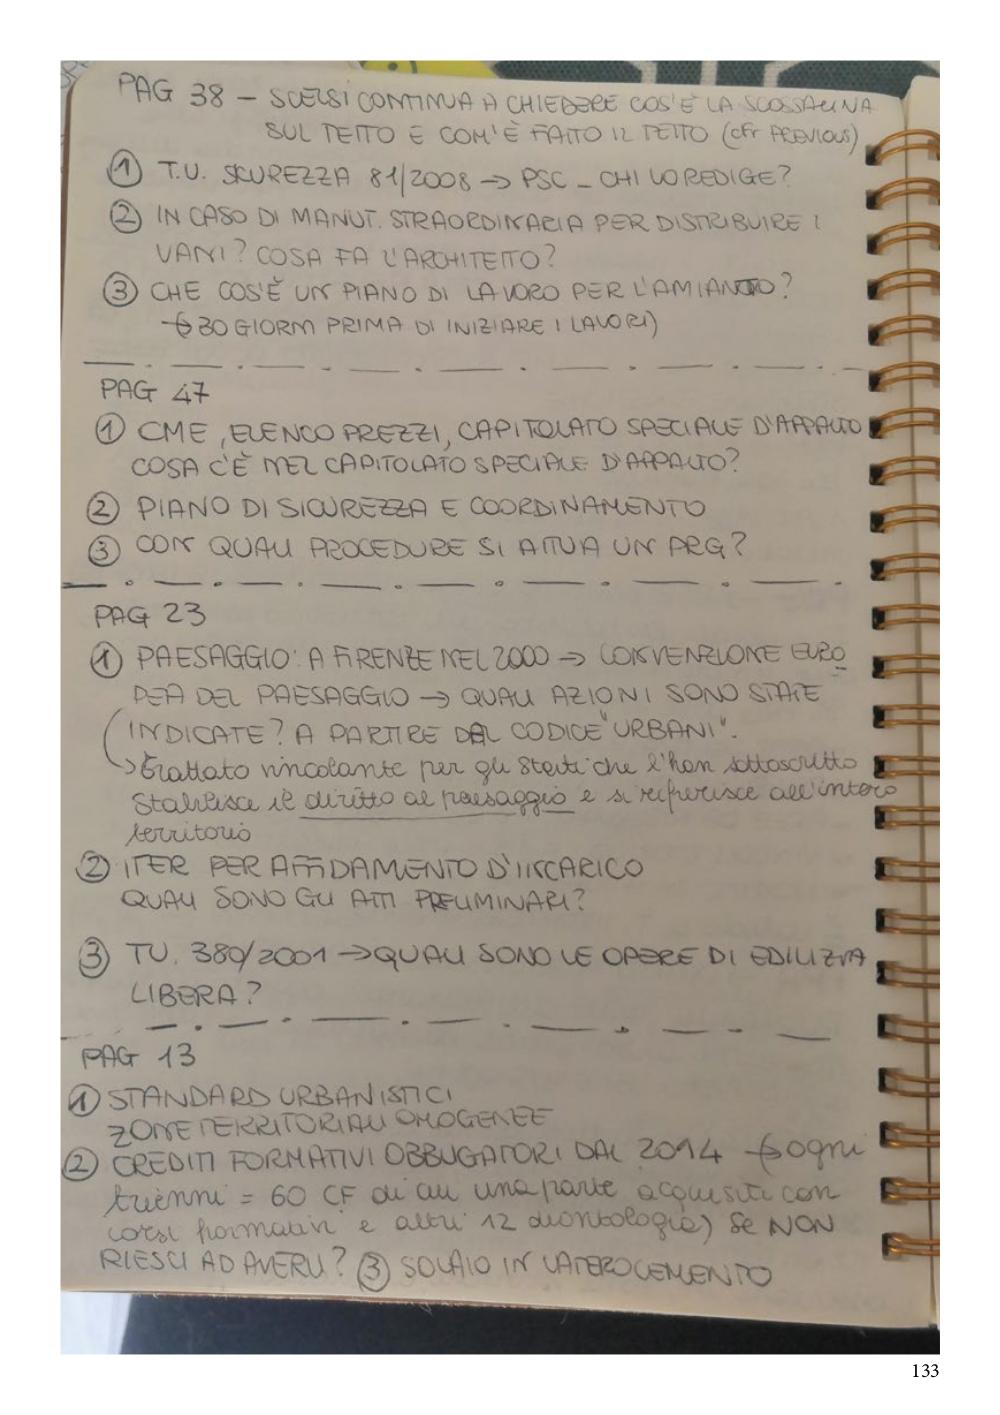 PAG 38 – SCELSI CONTINUA A CHIEDERE COS'È LA SCOSSALINA
SUL TETTO E COM'È FATTO IL TETTO (cfr PREVIOUS)
① T.U. SICUREZZA 81/2008 → PSC – CHI LO REDIGE?
② IN CASO DI MANUT. STRAORDINARIA PER DISTRIBUIRE I
VANI? COSA FA L'ARCHITETTO?
③ CHE COS'È UN PIANO DI LAVORO PER L'AMIANTO?
(→ 30 GIORNI PRIMA DI INIZIARE I LAVORI)
PAG 47
① CME, ELENCO PREZZI, CAPITOLATO SPECIALE D'APPALTO
COSA C'È NEL CAPITOLATO SPECIALE D'APPALTO?
② PIANO DI SICUREZZA E COORDINAMENTO
③ CON QUALI PROCEDURE SI ATTUA UN PRG?
PAG 23
① PAESAGGIO: A FIRENZE NEL 2000 → CONVENZIONE EURO
PEA DEL PAESAGGIO → QUALI AZIONI SONO STATE
INDICATE? A PARTIRE DAL CODICE "URBANI".
→ trattato vincolante per gli Stati che l'han sottoscritto
Stabilisce il diritto al paesaggio e si riferisce all'intero
territorio
② ITER PER AFFIDAMENTO D'INCARICO
QUALI SONO GLI ATTI PRELIMINARI?
③ TU. 380/2001 → QUALI SONO LE OPERE DI EDILIZIA
LIBERA?
PAG 13
① STANDARD URBANISTICI
ZONE TERRITORIALI OMOGENEE
② CREDITI FORMATIVI OBBLIGATORI DAL 2014 (→ ogni
triennio = 60 CF di cui una parte acquisiti con
corsi formativi e altri 12 deontologia) SE NON
RIESCI AD AVERLI? ③ SOLAIO IN LATEROCEMENTO
133